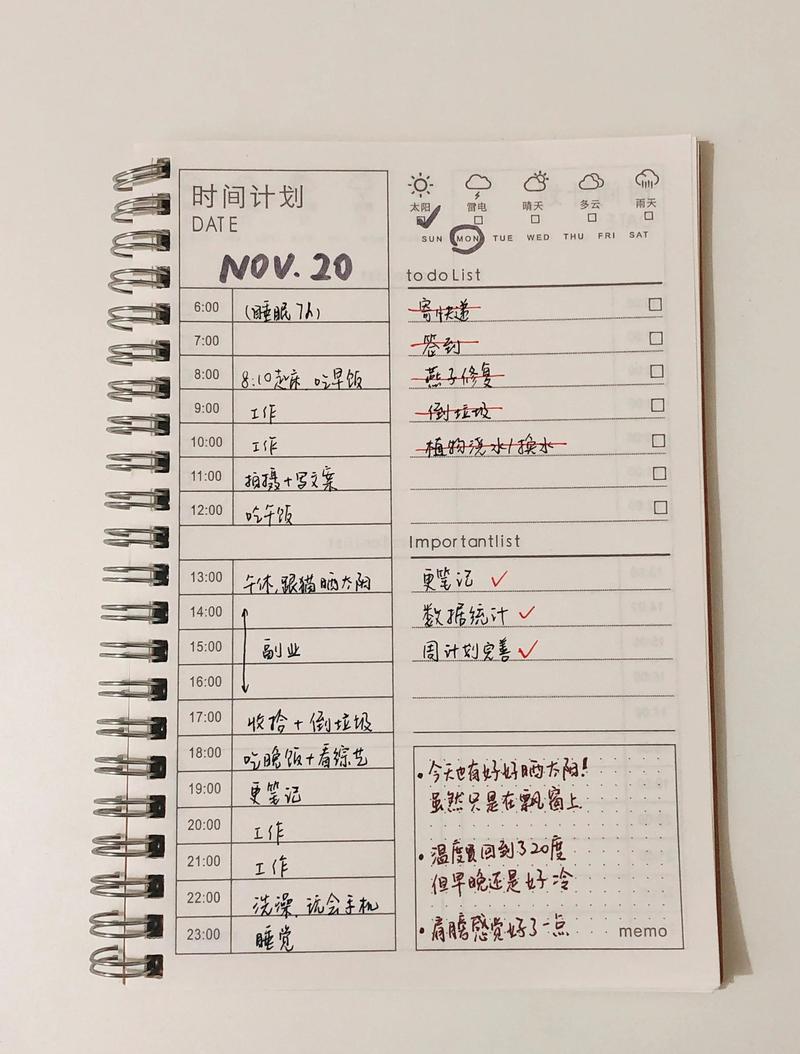 时间计划
DATE
NOV. 20
太阳 雷电 晴天 多云 雨天
SUN MON TUE WED THU FRI SAT
6:00 (睡眠7h)
7:00
8:00 8:10起床 吃早饭
9:00 工作
10:00 工作
11:00 拍摄+写文案
12:00 吃午饭
13:00 午休,跟猫晒太阳
14:00
15:00 副业
16:00
17:00 收拾+倒垃圾
18:00 吃晚饭+看综艺
19:00 更笔记
20:00 工作
21:00 工作
22:00 洗澡,玩会手机
23:00 睡觉
to do List
寄快递
签到
燕子修复
倒垃圾
植物浇水/换水
Importantlist
更笔记 ✓
数据统计 ✓
周计划完善 ✓
•今天也有好好晒太阳!
虽然只是在飘窗上
•温度回到了20度
但早晚还是好冷
•肩膀感觉好了一点
memo